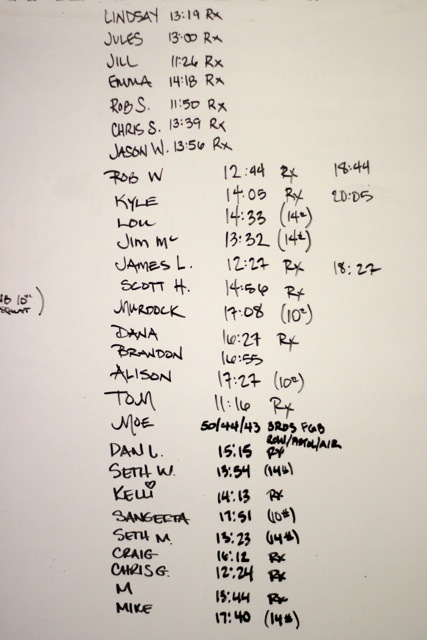 LINDSAY 13:19 Rx
JULES 13:00 Rx
JILL 11:26 Rx
EMMA 14:18 Rx
ROB S. 11:50 Rx
CHRIS S. 13:39 Rx
JASON W. 13:56 Rx
ROB W 12:44 Rx 18:44
KYLE 14:05 Rx 20:05
LOU 14:33 (14#)
JIM Mc 13:32 (14#)
JAMES L. 12:27 Rx 18:27
SCOTT H. 14:56 Rx
MURDOCK 17:08 (10#)
DANA 16:27 Rx
BRANDON 16:55
ALISON 17:27 (10#)
TOM 11:16 Rx
MOE 50/44/43 3RDS FGB
ROW/ /AIR
DAN L. 15:15 Rx
SETH W. 13:54 (14#)
KELLI 14:13 Rx
SANGEETA 17:51 (10#)
SETH M. 13:23 (14#)
CRAIG 16:12 Rx
CHRIS G. 12:24 Rx
M 13:44 Rx
MIKE 17:40 (14#)
10" )